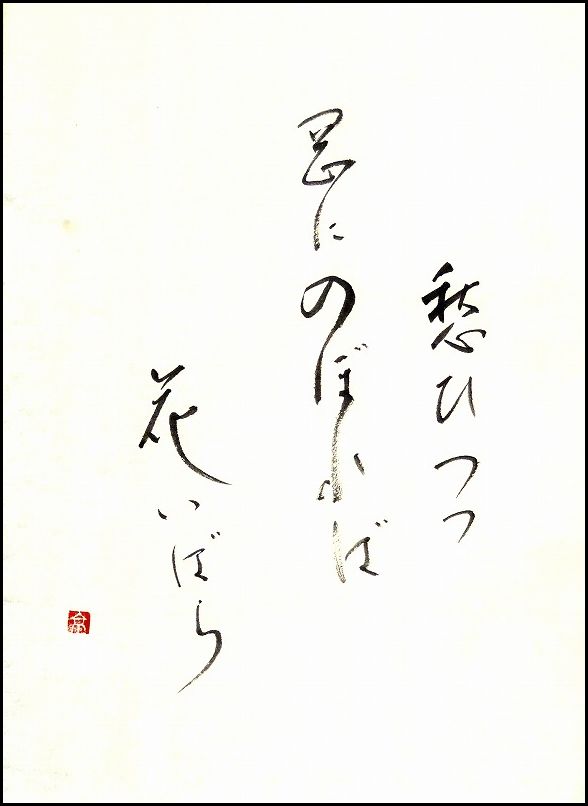 愁ひつつ
岡にのぼれば
花いばら